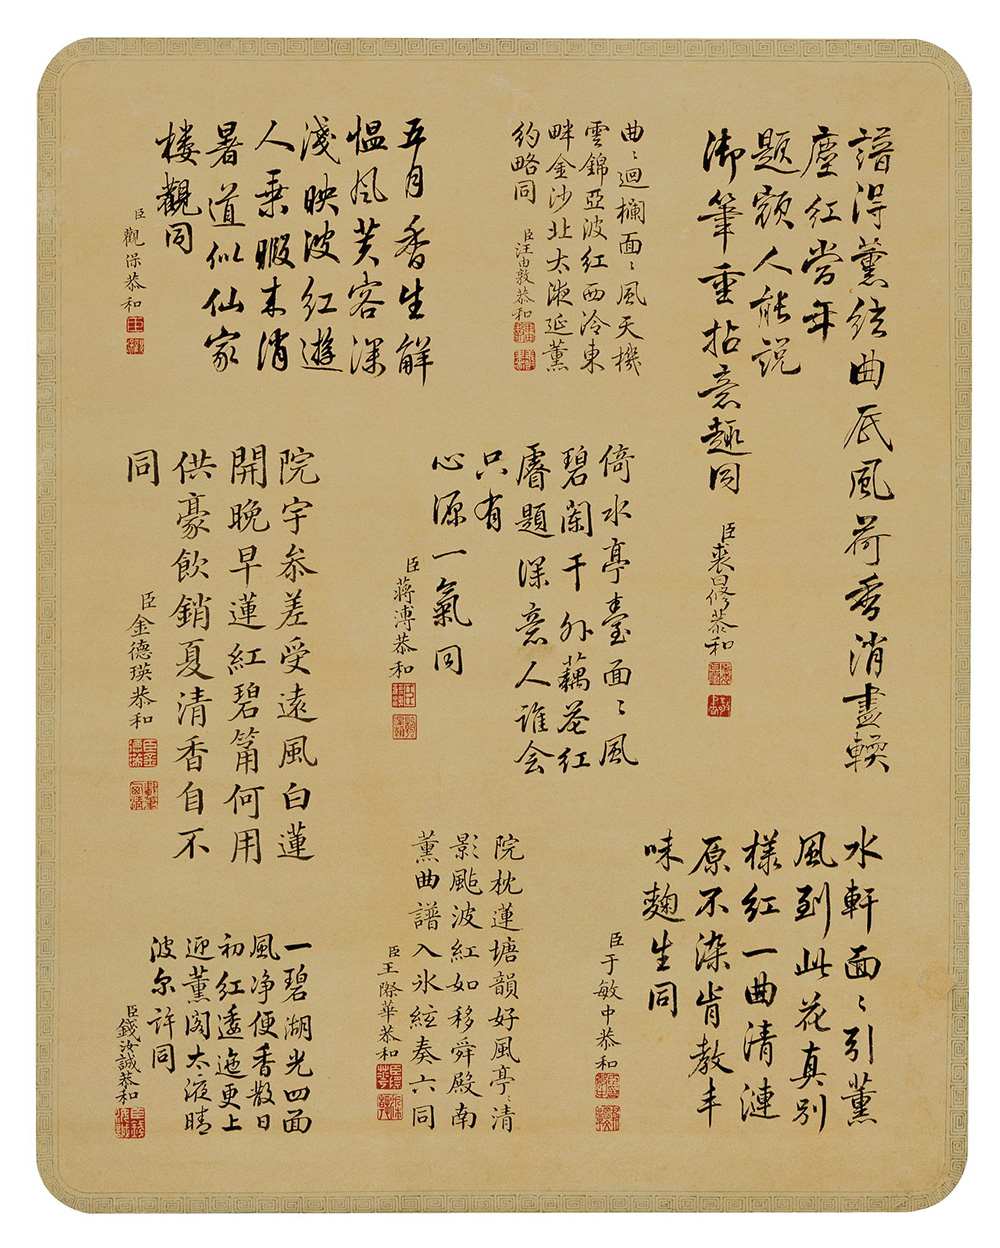 譜得薰絃曲底風荷香消盡軟
塵紅當年
題額人能說
御筆重拈意趣同
臣裘曰修恭和
水軒面〻引薰
風到此花真別
樣紅一曲清漣
原不染肯教丰
味麴生同
臣于敏中恭和
曲〻迴欄面〻風天機
雲錦亞波紅西泠東
畔金沙北太液延薰
約略同
臣汪由敦恭和
倚水亭臺面〻風
碧闌干外藕花紅
睿題深意人誰会
只有
心源一氣同
臣蔣溥恭和
院枕蓮塘韻好風亭〻清
影颭波紅如移舜殿南
薰曲譜入氷絃奏六同
臣王際華恭和
五月香生解
愠風芙容深
淺映波紅遊
人乗暇來消
暑道似仙家
楼觀同
臣觀保恭和
院宇叅差受遠風白蓮
開晚早蓮紅碧筩何用
供豪飲銷夏清香自不
同
臣金德瑛恭和
一碧湖光四面
風净便香散日
初紅逶迤更上
迎薰閣太液晴
波尔許同
臣錢汝誠恭和